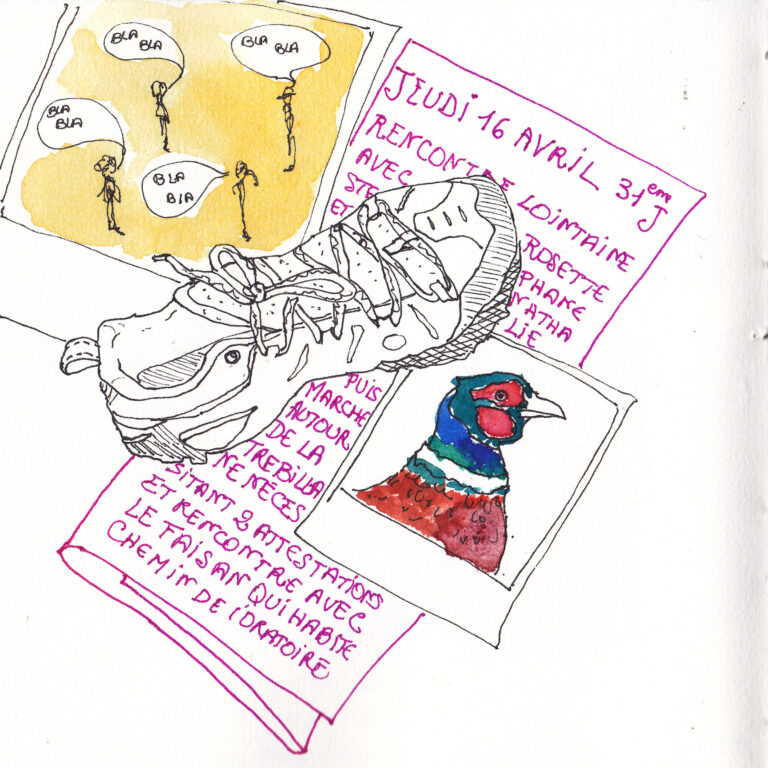 BLA
BLA
BLA
BLA
BLA
BLA
BLA
BLA
JEUDI 16 AVRIL 31ème J
RENCONTRE LOINTAINE
AVEC ROSETTE
STE PHANE
ET NATHA
LIE
PUIS
MARCHE
AUTOUR
DE LA
TREBILLA
NE NÉCES
SITANT 2 ATTESTATIONS
ET RENCONTRE AVEC
LE FAISAN QUI HABITE
CHEMIN DE L'ORATOIRE